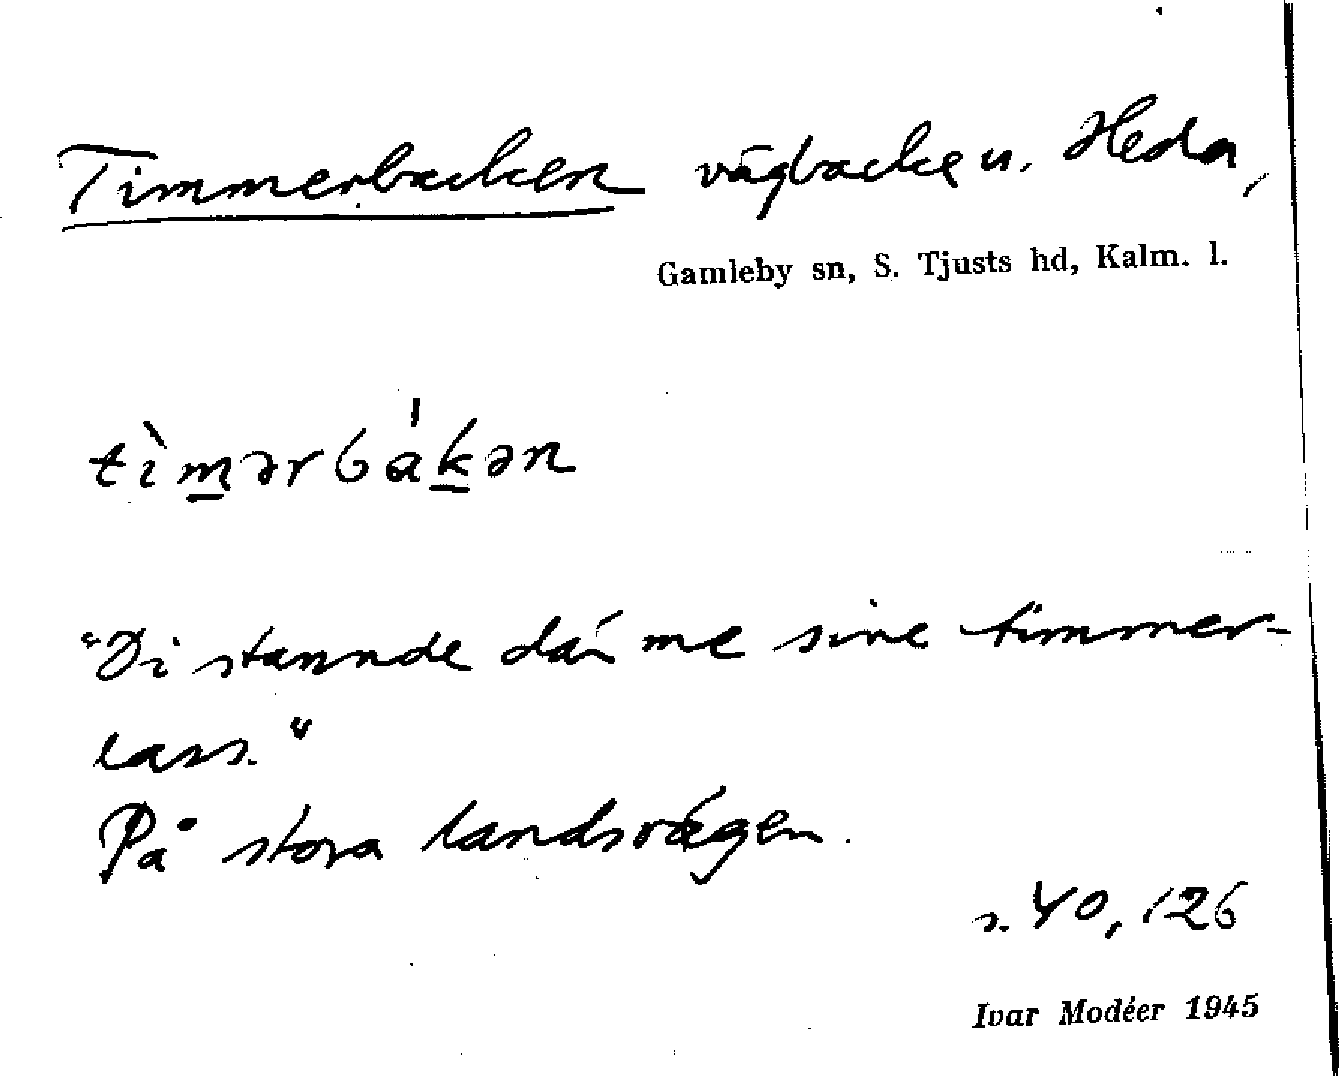 Timmerbacken vägbacke u. Heda,
Gamleby sn, S. Tjusts hd, Kalm. l.
tìm̲ərbák̲ən
"Di stannde där me sine timmer-
lass."
På stora landsvägen.
s. 40, 126
Ivar Modéer 1945